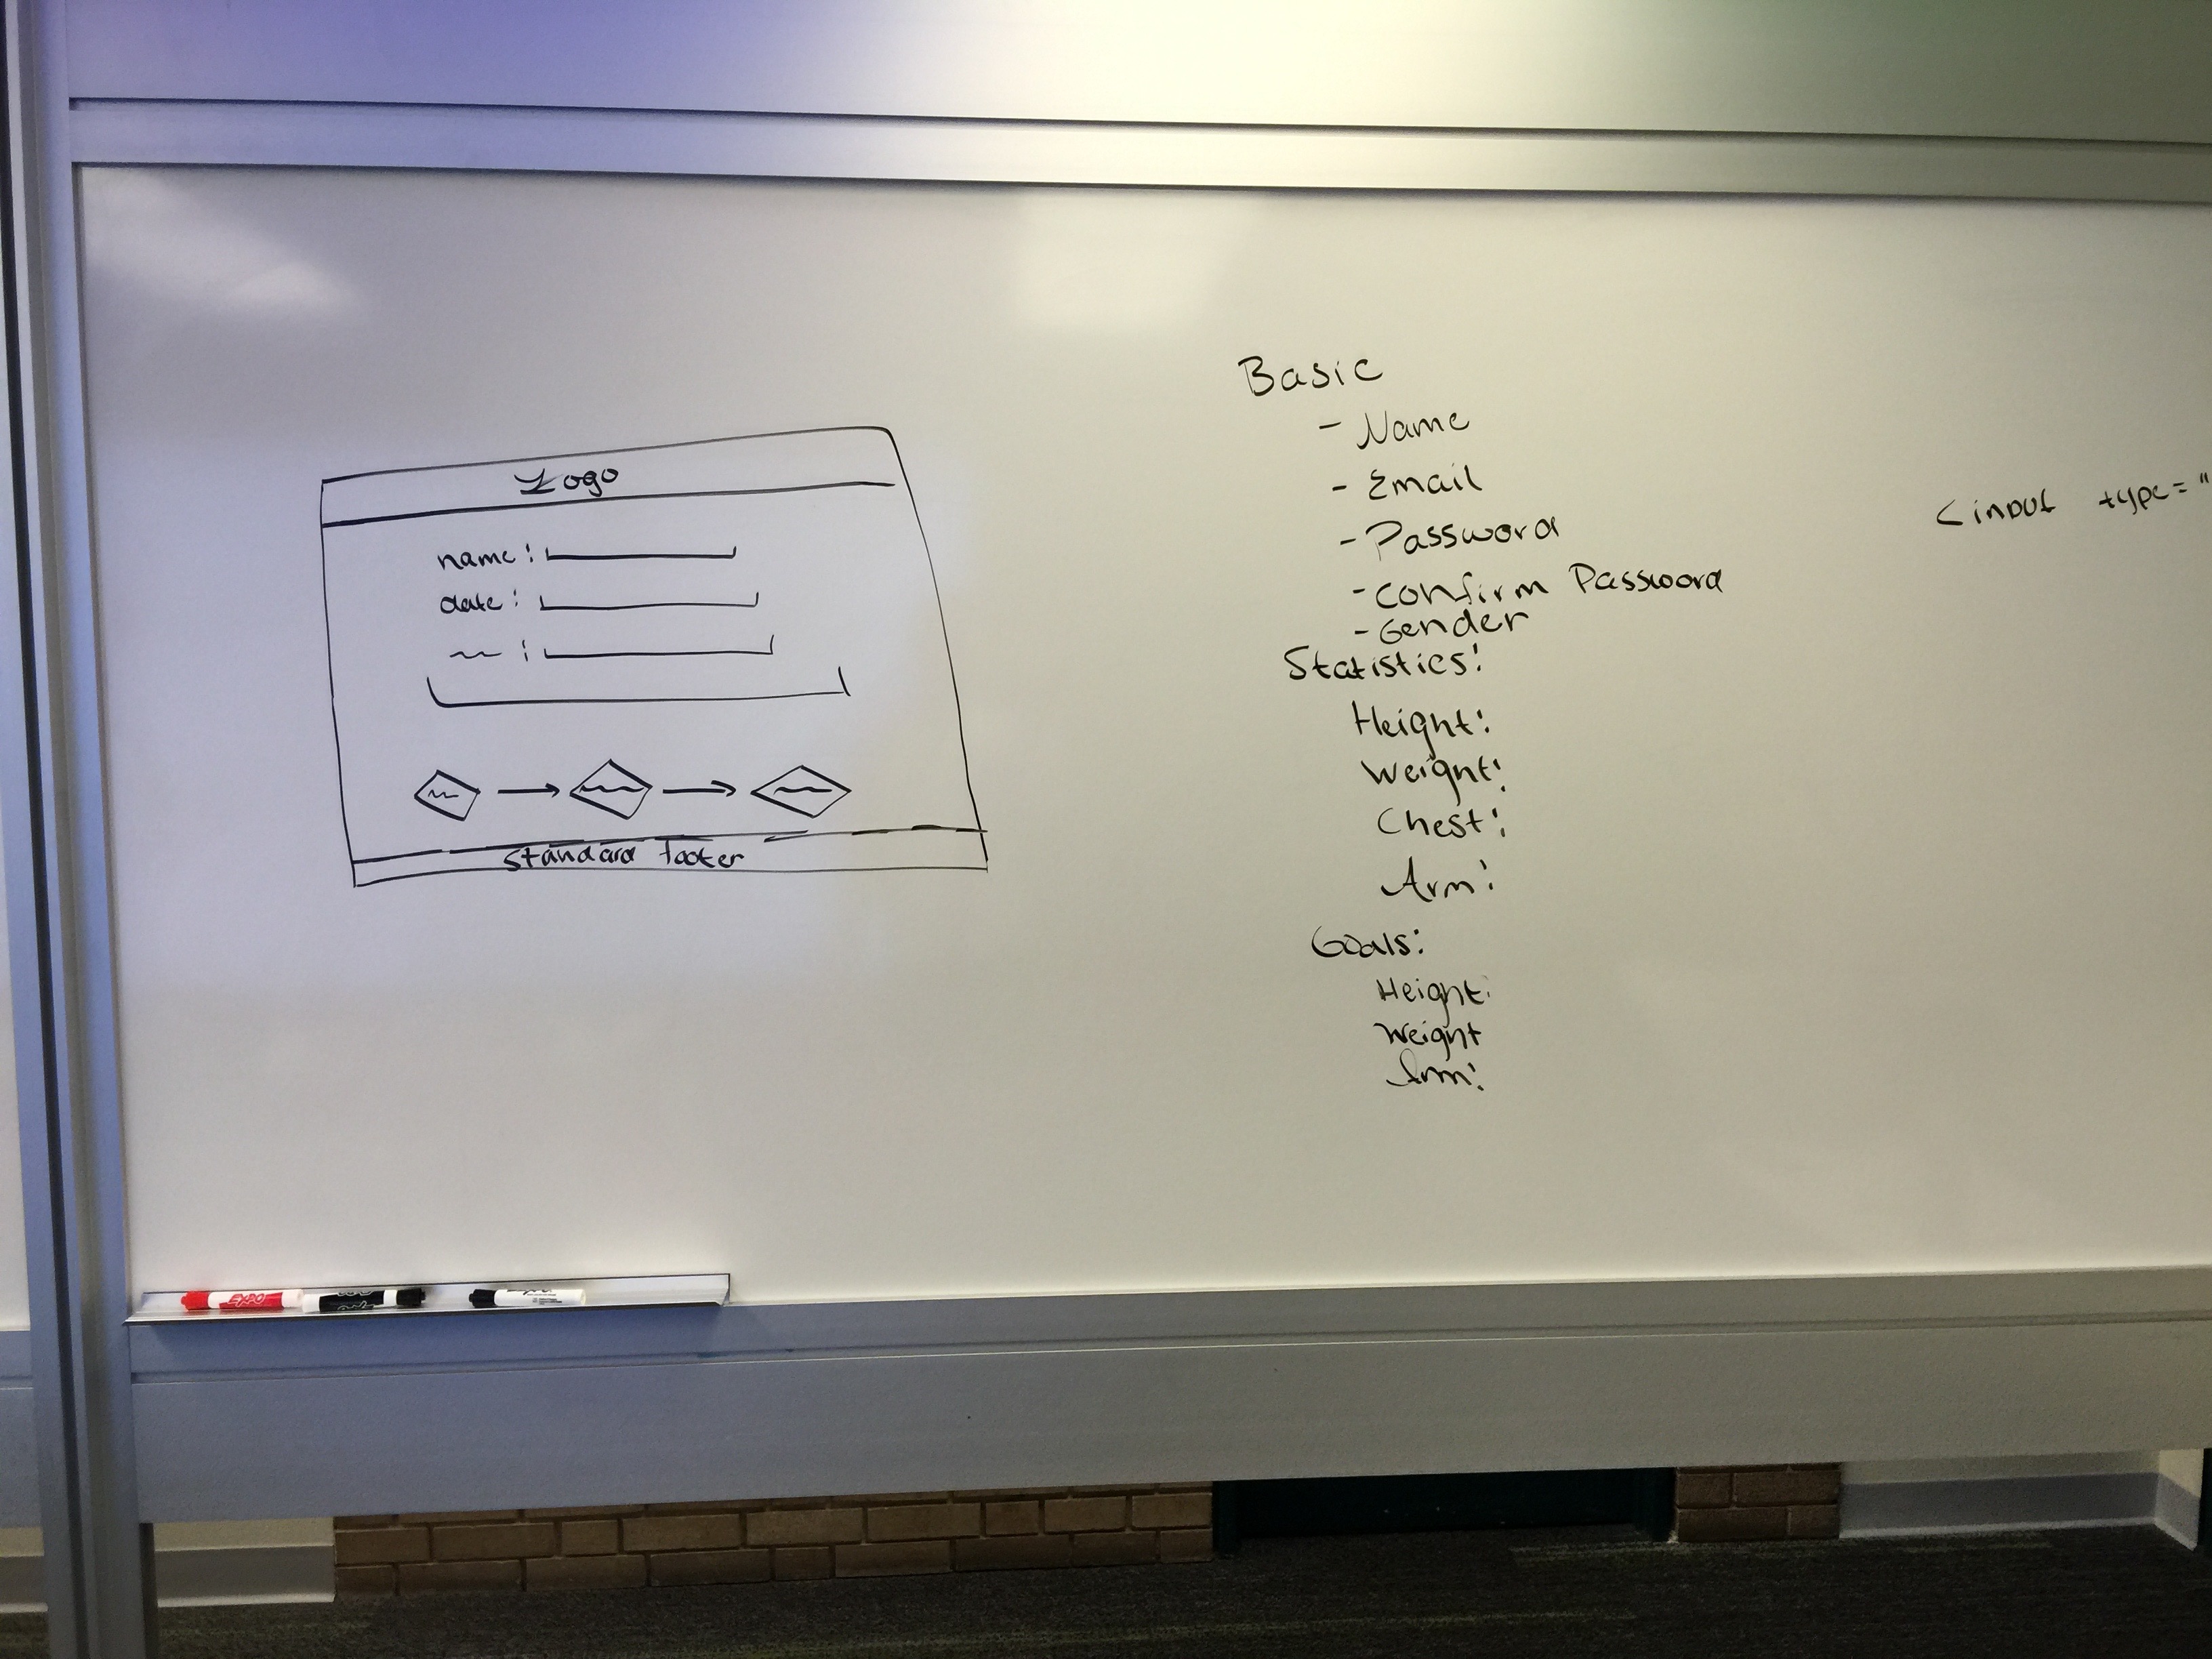 Logo
name:
date:
Standard footer
Basic
- Name
- Email
- Password
- Confirm Password
- Gender
Statistics:
Height:
Weight:
Chest:
Arm:
Goals:
Height:
Weight
Arm:
<input type="
EXPO